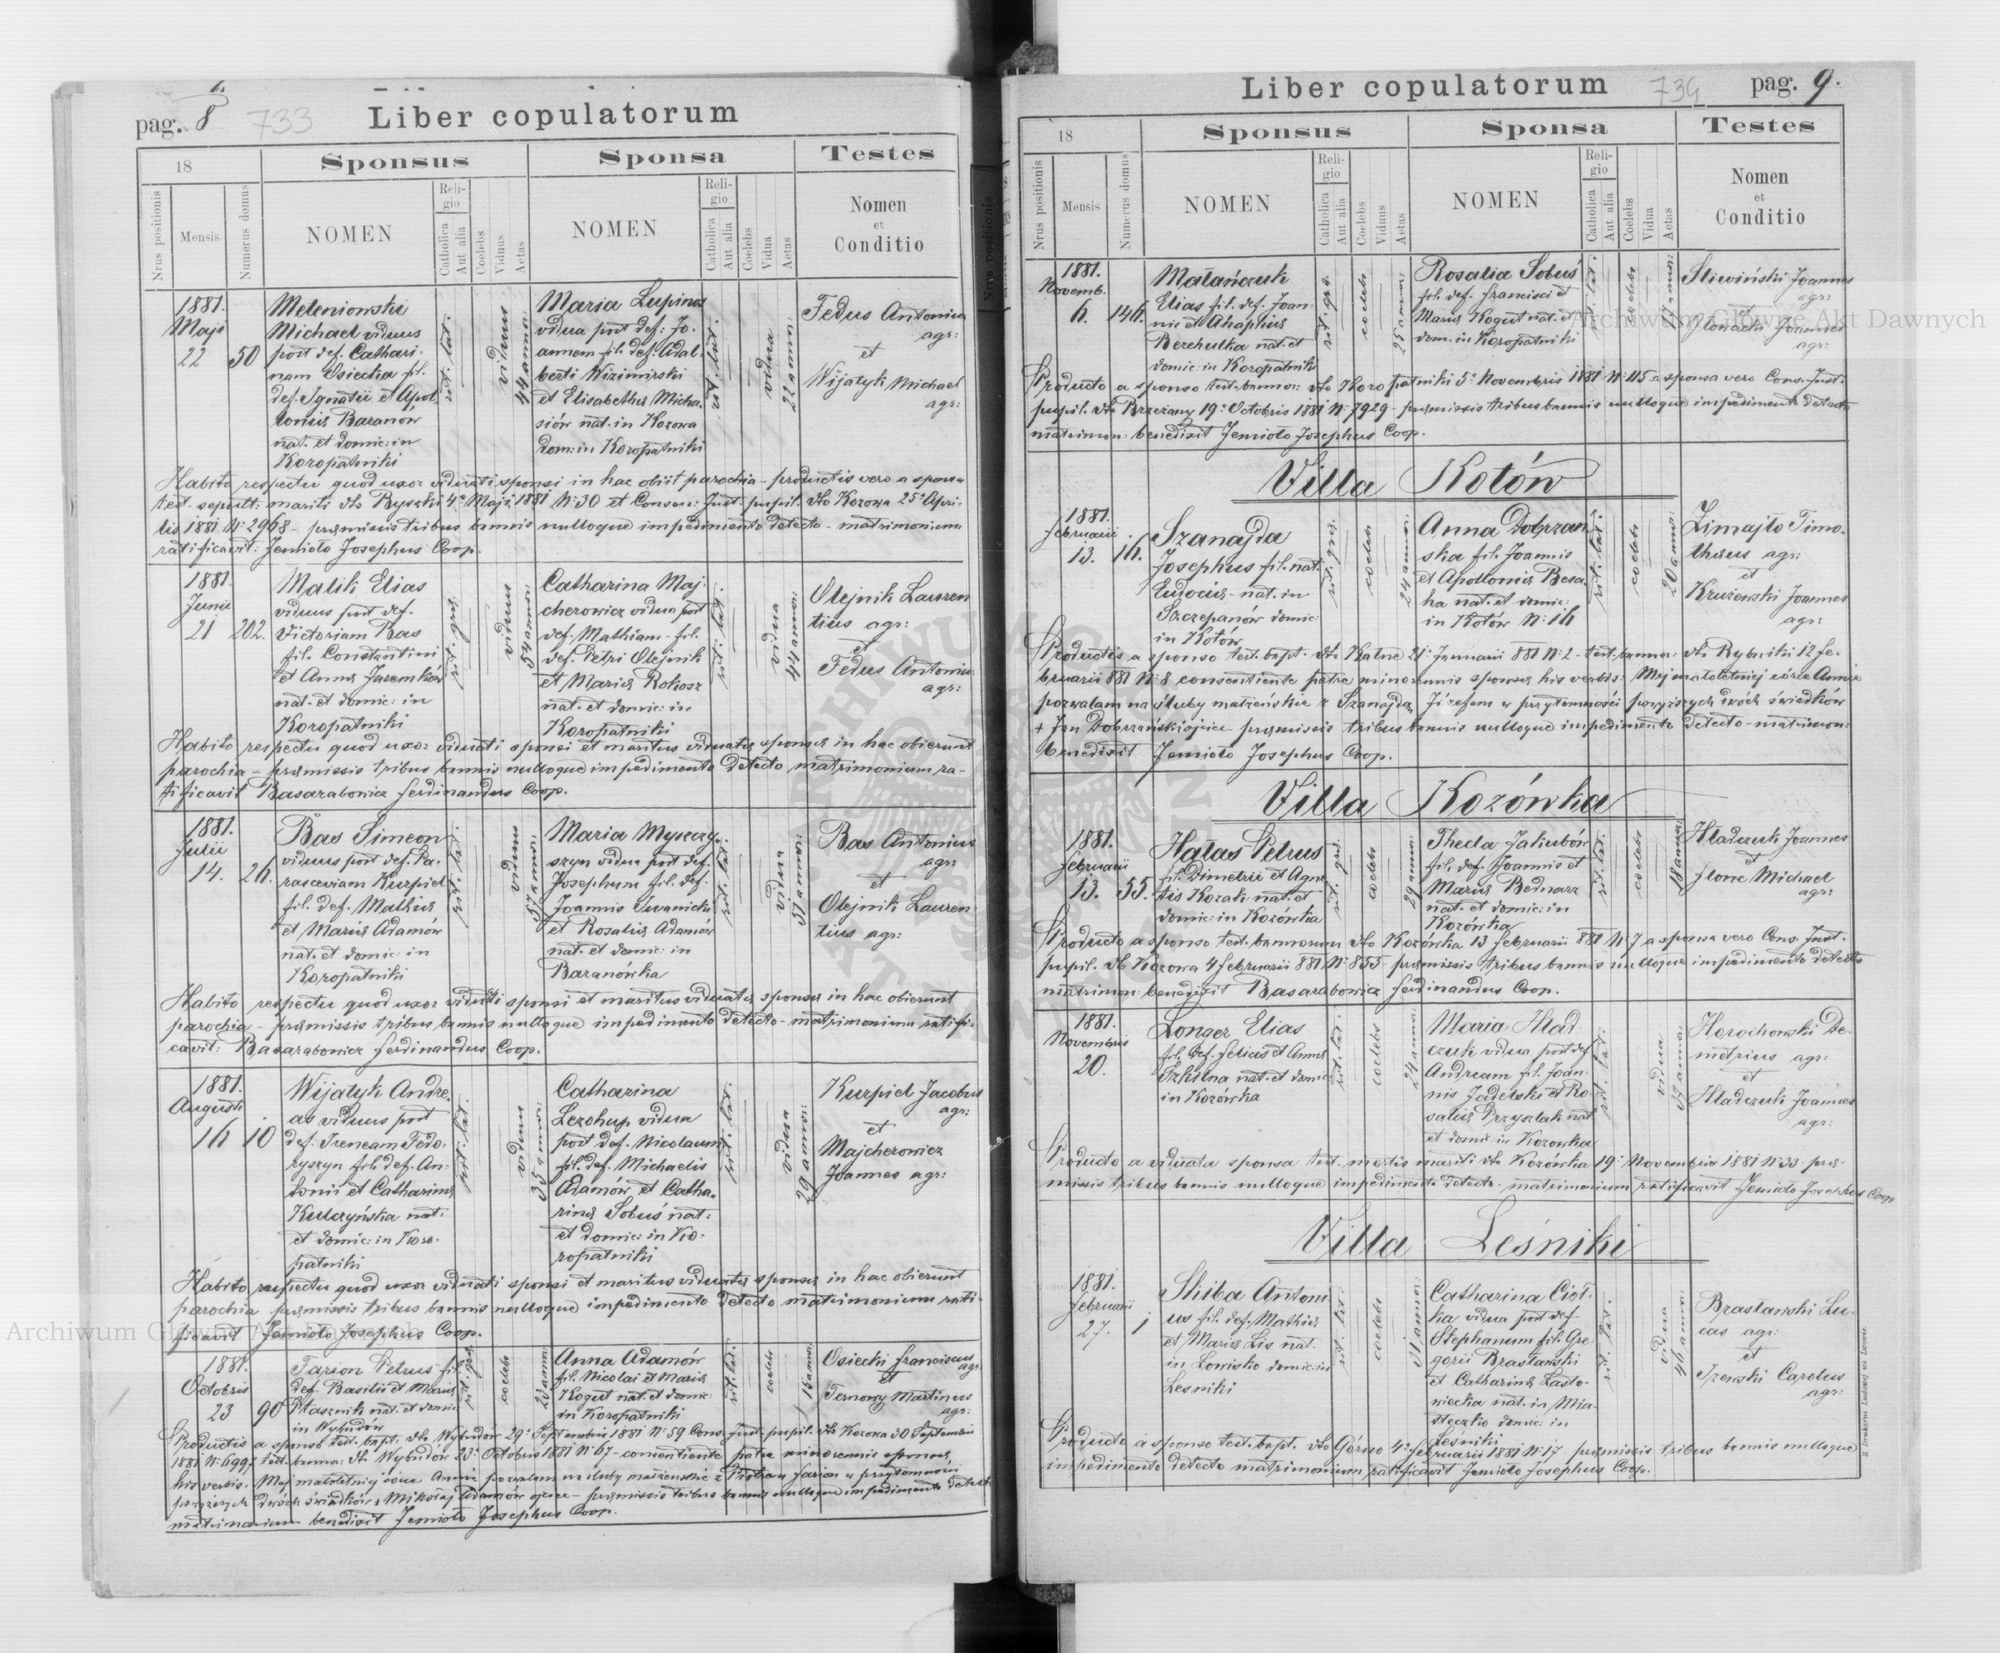 pag. 8
733
Liber copulatorum
18
Sponsus
Sponsa
Testes
Nrus positionis
Mensis
Numerus domus
NOMEN
Religio
Catholica
Aut alia
Coelebs
Viduus
Aetas
NOMEN
Religio
Catholica
Aut alia
Coelebs
Vidua
Aetas
Nomen
et
Conditio
1881.
Maji
22
50
Melenionski
Michael viduus
post def. Cathari-
nam Osiecka fil.
def. Ignatii et Apol-
loniæ Baranów
nat. et domic: in
Koropatniki
rit. lat.
viduus
44 annor:
Maria Lupinos
vidua post def: Jo-
annem fil. def. Adal-
berti Wizimirski
et Elisabethæ Micha-
siów nat. in Kozowa
dom: in Koropatniki
rit. lat.
vidua
22 annor:
Fedus Antonius
agr:
et
Wijatyk Michael
agr:
Habito respectu quod uxor viduati sponsi in hac obiit parochia - productis vero a sponsa
test. sepult: mariti dto Ryszki 4º Maji 1881 Nº 30 et Consen: Jud. pupil. dto Kozowa 25º Apri-
lis 1881 Nº 2968 - præmissis tribus bannis nulloque impedimento detecto - matrimonium
ratificavit: Jemioło Josephus Coop.
1881.
Junii
21
202.
Malik Elias
viduus post def.
Victoriam Bas
fil. Constantini
et Annæ Jaremków
nat. et domic: in
Koropatniki
rit. gr.
viduus
54 annor:
Catharina Maj-
cherowicz vidua post
def. Mathiam - fil.
def. Petri Olejnik
et Mariæ Rokosz
nat. et domic: in
Koropatniki
rit. lat.
vidua
44 annor:
Olejnik Lauren
tius agr:
et
Fedus Antonius
agr:
Habito respectu quod uxor viduati sponsi et maritus viduatæ sponsæ in hac obierunt
parochia - præmissis tribus bannis nulloque impedimento detecto matrimonium ra-
tificavit Basarabowicz Ferdinandus Coop.
1881.
Julii
14.
26.
Bas Simeon
viduus post def. Pa-
rasceviam Kurpiel
fil. def. Mathiæ
et Mariæ Adamów
nat. et domic: in
Koropatniki
rit. lat.
viduus
57 annor:
Maria Myszczy-
szyn vidua post def.
Josephum fil. def.
Joannis Iwanicki
et Rosaliæ Adamów
nat. et domic: in
Baranówka
rit. lat.
vidua
51 annor:
Bas Antonius
agr:
et
Olejnik Lauren-
tius agr:
Habito respectu quod uxor viduati sponsi et maritus viduatæ sponsæ in hac obierunt
parochia - præmissis tribus bannis nulloque impedimento detecto - matrimonium ratifi-
cavit: Basarabowicz Ferdinandus Coop.
1881.
Augusti
16
10
Wijatyk Andre-
as viduus post
def. Ireneam Fedo-
ryszyn fil. def. An-
tonii et Catharinæ
Kulczyńska nat:
et domic: in Koro-
patniki
rit. lat.
viduus
35 annor:
Catharina
Lezohup vidua
post def. Nicolaum
fil. def. Michaelis
Adamów et Catha-
rinæ Sobuś nat:
et domic: in Ko-
ropatniki
rit. lat.
vidua
29 annor:
Kurpiel Jacobus
agr:
et
Majcherowicz
Joannes agr:
Habito respectu quod uxor viduati sponsi et maritus viduatæ sponsæ in hac obierunt
parochia præmissis tribus bannis nulloque impedimento detecto matrimonium rati-
ficavit Jemioło Josephus Coop.
1881.
Octobris
23
90
Farion Petrus fil.
def. Basilii et Mariæ
Ptasznik nat. et domic
in Wybudów
rit. gr.
coelebs
Anna Adamów
fil. Nicolai et Mariæ
Kogut nat. et domic:
in Koropatniki
rit. lat.
coelebs
18 annor:
Osiecki Franciscus
agr:
Ternowy Martinus
agr:
Productis a sponso test. bapt. dto Wybudów 29º Septembris 1881 Nº 59 Cons. Jud. pupil. dto Kozowa 30 Septembris
1881 Nº 6997 test. bannor: dto Wybudów 23º Octobris 1881 Nº 67 - consentiente patre minorennis sponsæ
his verbis: Mej małoletniej córce Annie pozwalam na śluby małżeńskie z Piotrem Farion w przytomności
powyższych dwóch świadków + Mikołaj Adamów ojciec - præmissis tribus bannis nulloque impedimento detecto
matrimonium benedixit Jemioło Josephus Coop.
Liber copulatorum
734
pag. 9.
18
Sponsus
Sponsa
Testes
Nrus positionis
Mensis
Numerus domus
NOMEN
Religio
Catholica
Aut alia
Coelebs
Viduus
Aetas
NOMEN
Religio
Catholica
Aut alia
Coelebs
Vidua
Aetas
Nomen
et
Conditio
1881.
Novemb.
6.
146.
Matańczuk
Elias fil. def. Joan-
nis et Ahaphiæ
Berehulka nat. et
domic: in Koropatniki
rit. gr.
coelebs
25 annor:
Rosalia Sobuś
fil. def. Francisci et
Mariæ Kogut nat. et
dom. in Koropatniki
rit. lat.
coelebs
Sliwiński Joannes
agr:
et
Joannes
agr:
Producto a sponso test. bannor: dto Koropatniki 5º Novembris 1881 Nº 115 a sponsa vero Cons. Jud.
pupil. dto Brzeżany 19º Octobris 1881 Nº 7929 - præmissis tribus bannis nulloque impedimento detecto
matrimon: benedixit Jemioło Josephus Coop.
Villa Kotów
1881.
Februarii
13.
16.
Szanajda
Josephus fil. nat.
Eudociæ - nat. in
Szczepanów domic:
in Kotów
rit. gr.
coelebs
24 annor:
Anna Dobrzań
ska fil. Joannis
et Apolloniæ Besa-
ha nat. et domic:
in Kotów Nº 16
rit. lat.
coelebs
20 annor:
Zimajto Timo-
theus agr:
et
Kruzewski Joannes
agr:
Productis a sponso test. bapt. dto Kalne 21º Januarii 881 Nº 2 - test. bannor: dto Rybniki 12 Fe-
bruarii 881 Nº 8 consentiente patre minorennis sponsæ his verbis: Mej małoletniej córce Annie
pozwalam na śluby małżeńskie z Szanajdą Józefem w przytomności powyższych dwóch świadków
+ Jan Dobrzański ojciec præmissis tribus bannis nulloque impedimento detecto - matrimon:
benedixit Jemioło Josephus Coop.
Villa Kozówka
1881.
Februarii
13.
55.
Hałas Petrus
fil. Dimetrii et Agne
tis Kozak nat. et
domic: in Kozówka
rit. gr.
coelebs
29 annor:
Thecla Jakubów
fil. def. Joannis et
Mariæ Bednarz
nat. et domic: in
Kozówka
rit. lat.
coelebs
18 annor:
Hładczuk Joannes
et
Michael
agr:
Producto a sponso test. bannorum dto Kozówka 13 Februarii 881 Nº 7 a sponsa vero Cons. Jud.
pupil. dto Kozowa 4 Februarii 881 Nº 855 - præmissis tribus bannis nulloque impedimento detecto
matrimon: benedixit Basarabowicz Ferdinandus Coop.
1881.
Novembris
20.
Longer Elias
fil. def. Felicis et Annæ
Szkilna nat. et domic:
in Kozówka
rit. lat.
coelebs
24 annor:
Maria Hład
czuk vidua post def.
Andream fil. Joan-
nis Jadelski et Ro-
saliæ Przyszlak nat.
et domic: in Kozowka
rit. lat.
vidua
Horochowski De-
metrius agr:
et
Hładczuk Joannes
agr:
Producto a viduata sponsa test. mortis mariti dto Kozówka 19º Novembris 1881 Nº 33 præ-
missis tribus bannis nulloque impedimento detecto - matrimonium ratificavit Jemioło Josephus Coop
Villa Leśniki
1881.
Februarii
27.
1
Skiba Antoni
us fil. def. Mathiæ
et Mariæ Lis nat.
in Łowisko domic: in
Leśniki
rit. lat.
coelebs
31 annor:
Catharina Cioł-
ka vidua post def.
Stephanum fil. Gre
gorii Brasławski
et Catharinæ Lasto-
wiecka nat. in Mia-
steczko domic: in
Leśniki
rit. lat.
vidua
46 annor:
Brasławski Lu-
cas agr:
et
Carolus
agr:
Producto a sponso test. bapt. dto Górno 4º Februarii 1881 Nº 17 præmissis tribus bannis nulloque
impedimento detecto matrimonium ratificavit Jemioło Josephus Coop.
Z Drukarni Ludowej we Lwowie.
Archiwum Główne Akt Dawnych
Archiwum Główne Akt Dawnych